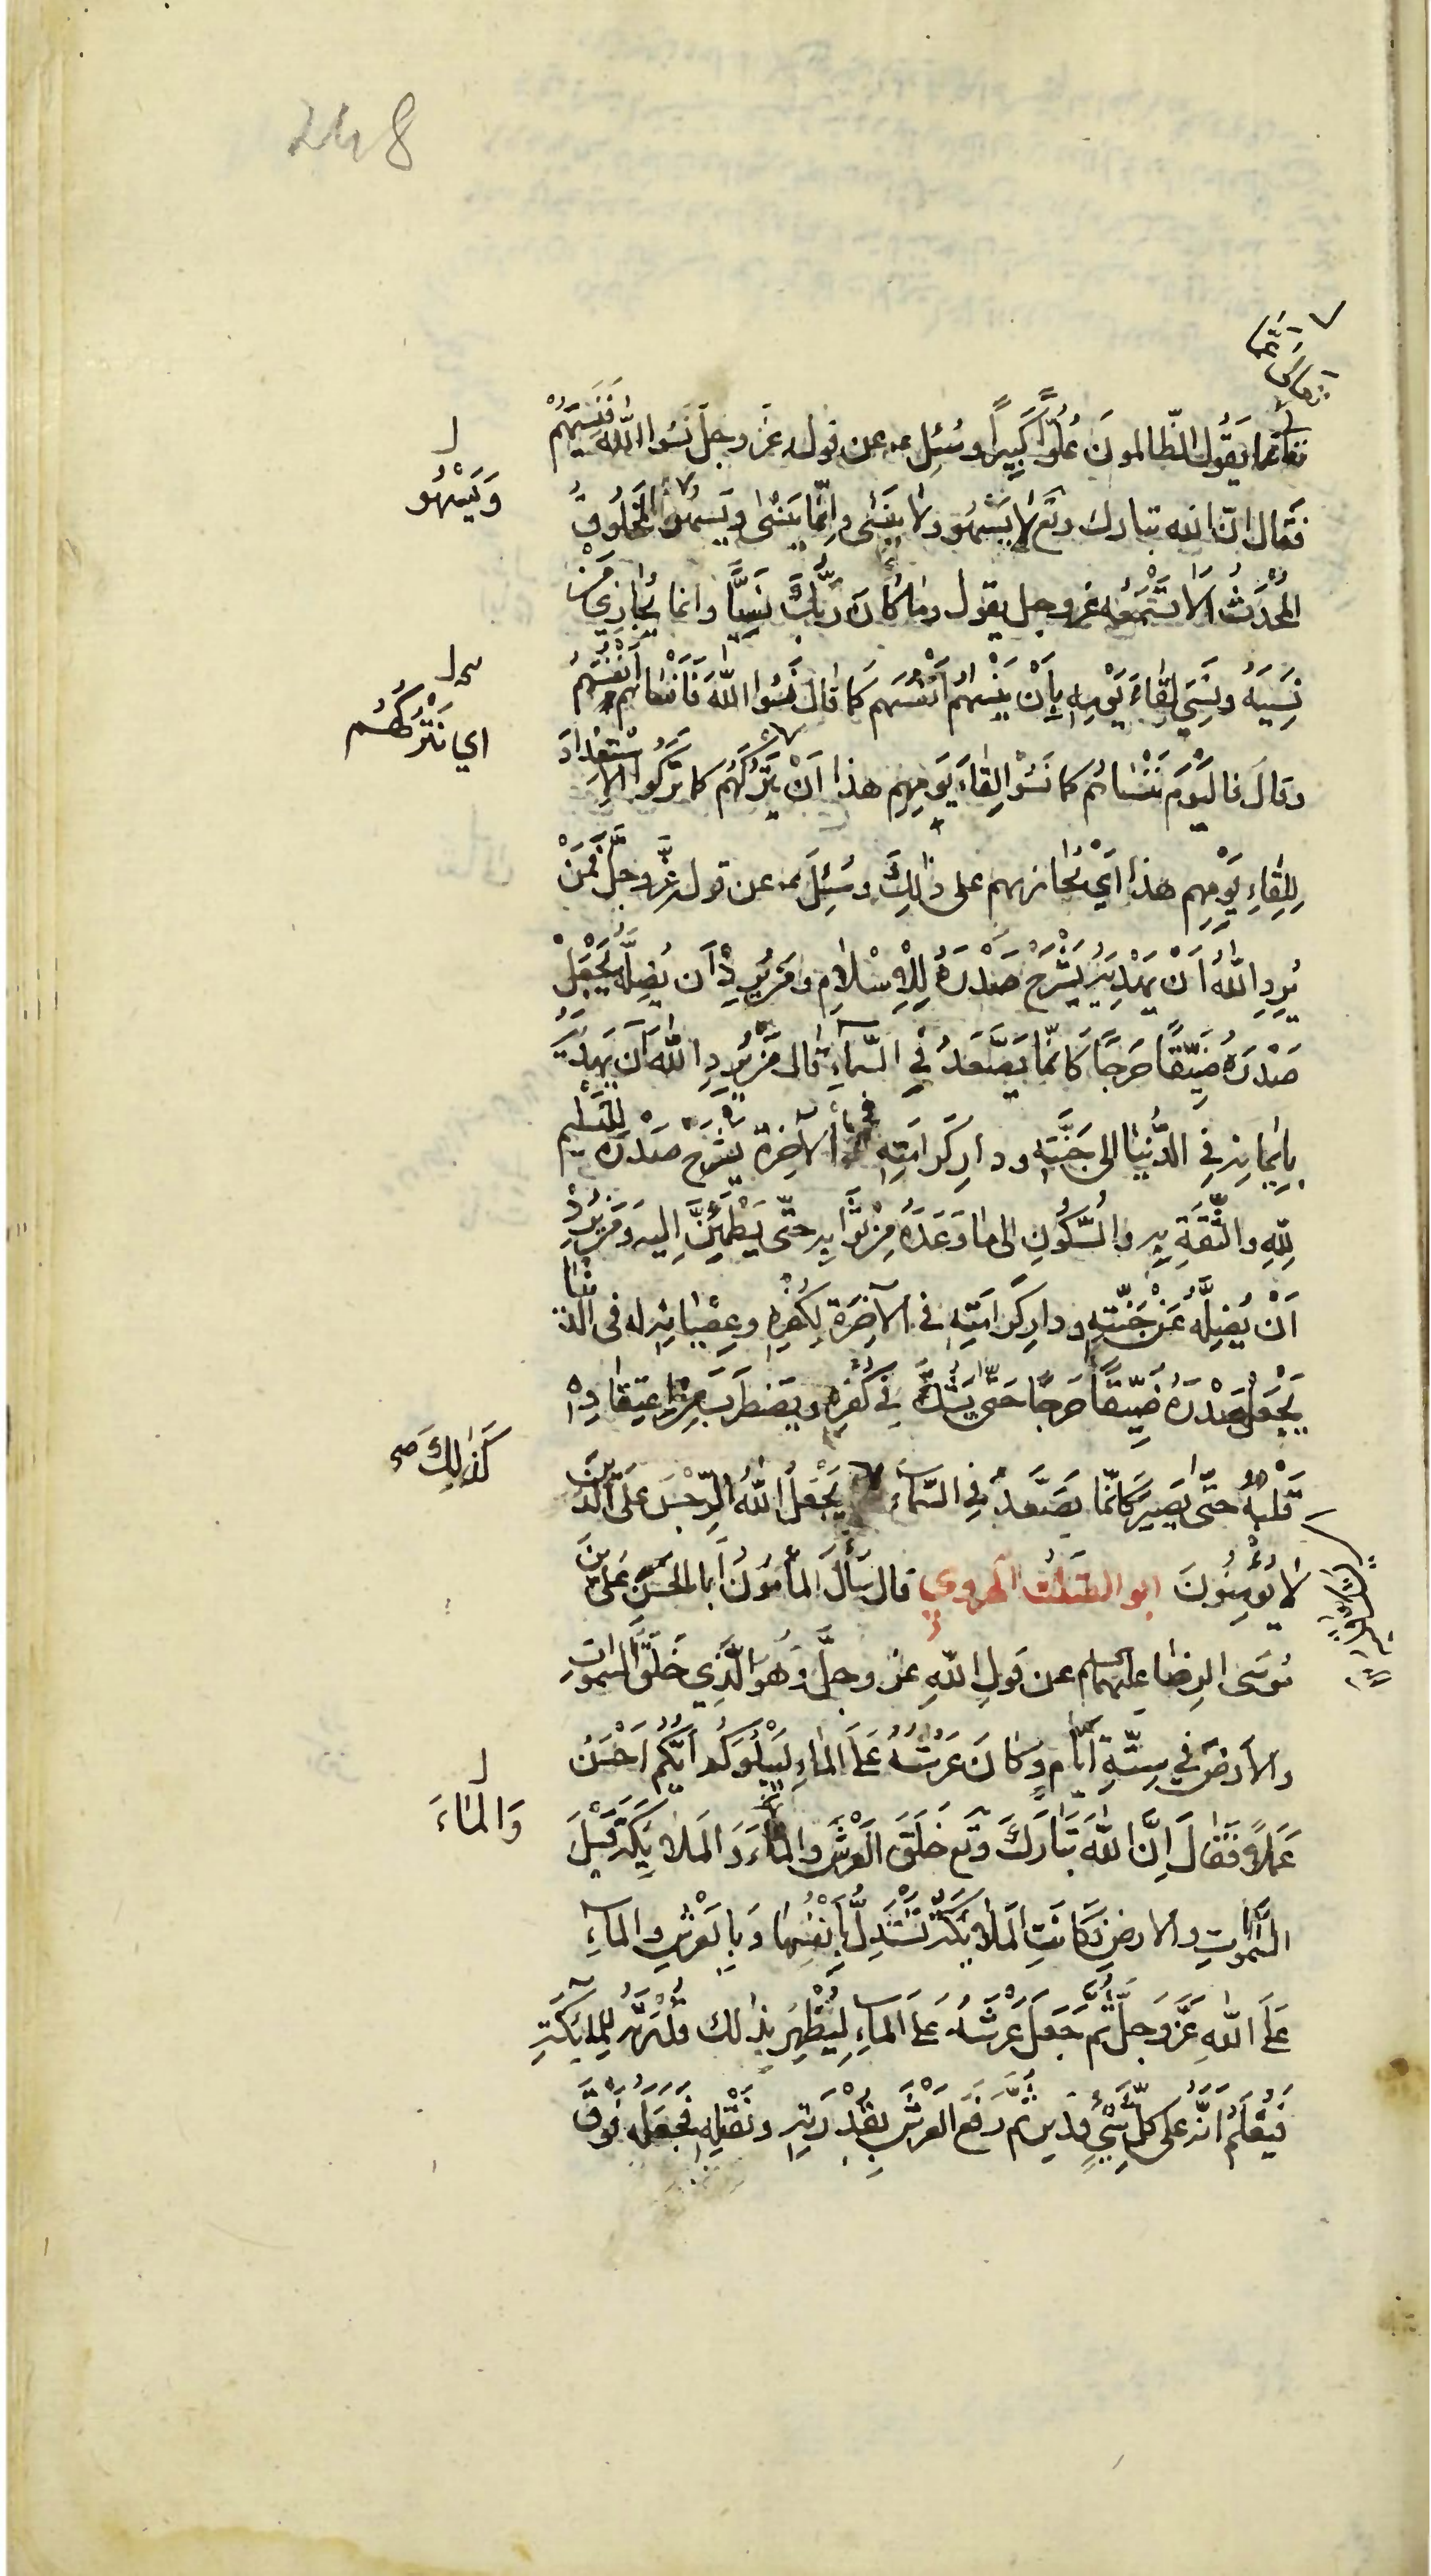 248
تعالى عما يقول الظالمون عُلُوًّا كَبِيرًا وسُئِل عن قوله عَزّ وجلّ نَسُوا اللّٰه فَنَسِيَهُمْ
فقال انّ الله تبارك وتع لا يَسْهُو ولا يَنْسٰى وانّما يَنْسٰى ويَسهُو المخلُوقُ
وَيَسْهُو
المُحْدَثُ اَلا تَسْمَعُه عزوجل يقول وما كانَ رَبُّكَ نَسِيًّا وانما يُجازِي مَنْ
نَسِيَهُ ونَسِيَ لِقاءَ يَوْمِهِ بِاَنْ يُنْسِيَهُمْ اَنْفُسَهُم كَما قالَ نَسُوا اللّٰهَ فَاَنْسٰاهُم اَنْفُسَهُمْ
اي نَتْرُكُهُم
وقالَ فاليَوْمَ نَنْسٰاهُم كما نَسُوْا لِقٰاءَ يَومِهِم هذا اَنْ نَتْرُكُهُم كما تَرَكُوا الاِسْتِعْدادَ
لِلِقٰاءِ يَوْمِهِم هذا اَيْ نُجازيهم على ذٰلِكَ وسُئِلَ عن قوله عَزَّوجَلَّ فَمَنْ
يُرِدِ اللّٰهُ اَنْ يَهْدِيَهُ يَشْرَحْ صَدْرَهُ لِلْاِسْلامِ ومَن يُرِدْ اَن يُضِلَّهُ يَجْعَلْ
صَدْرَهُ ضَيِّقًا حَرَجًا كَاَنَّما يَصَّعَّدُ فِي السَّماءِ قال مَن يُرِدِ اللّٰهُ اَن يَهْدِيَهُ
بِاِيمانِهِ فِي الدُّنْيٰا الى جَنَّتِهِ ودارِ كَرامَتِهِ في الآخِرَة يَشْرَحْ صَدْرَهُ لِلتَّسْلِيمِ
لِلّٰهِ والثِّقَةِ بِهِ والسُّكُونِ الى ما وَعَدَهُ مِنْ ثَوابِهِ حتّى يَطْمَئِنَّ اِليه ومَن يُرِدْ
اَنْ يُضِلَّهُ عَنْ جَنَّتِهِ ودارِ كَرامَتِهِ في الآخِرَة لِكُفْرِهِ وعِصْيانِهِ له فى الدنيا
يَجْعَلْ صَدْرَهُ ضَيِّقًا حَرَجًا حَتّى يَشُكَّ فِي كُفْرِهِ ويَضطَرِبَ مِنْ اِعْتِقادِهِ
قَلْبُهُ حتّى يَصِيرَ كَاَنّما يَصَّعَّدُ فِي السَّماءِ يَجْعَلُ اللّٰهُ الرِّجْسَ عَلَى الَّذِينَ
كَذٰلِكَ صح
لا يُؤْمِنُونَ ابو الصَّلْت الهروي قال سَأَلَ المأمُونُ اَبا الحَسَن عَلِيَّ بْنَ
مُوسَى الرِضا عليهما السلام عن قَولِ اللّٰهِ عزوجلَّ وهُو الَّذِي خَلَقَ السَّمٰوٰاتِ
والاَرضَ في سِتَّةِ اَيّام وَكانَ عَرْشُهُ عَلَى الماءِ لِيَبْلُوَكُم اَيُّكُم اَحْسَنُ
عَمَلًا فَقٰالَ اِنَّ اللّٰهَ تَبٰارَكَ وتع خَلَقَ العَرْشَ والماءَ وَالمَلائِكَةَ قَبْلَ
وَالمٰاءَ
السَّمٰوٰاتِ والارضِ وَكانَتِ المَلائِكَةُ تَسْتَدِلُّ بِاَنْفُسِهٰا وَبِالعَرْشِ والماءِ
عَلَى اللّٰهِ عَزَّوجلَّ ثُمَّ جَعَلَ عَرْشَهُ عَلَى الماءِ لِيُظْهِرَ بِذٰلك قُدْرَتَهُ لِلمَلائكَةِ
فَيَعْلَمُ اَنَّهُ على كلّ شَيْءٍ قدير ثُمَّ رَفَعَ العَرْشَ بِقُدْرَتِهِ ونَقَلَهُ فَجَعَلَهُ فَوْقَ